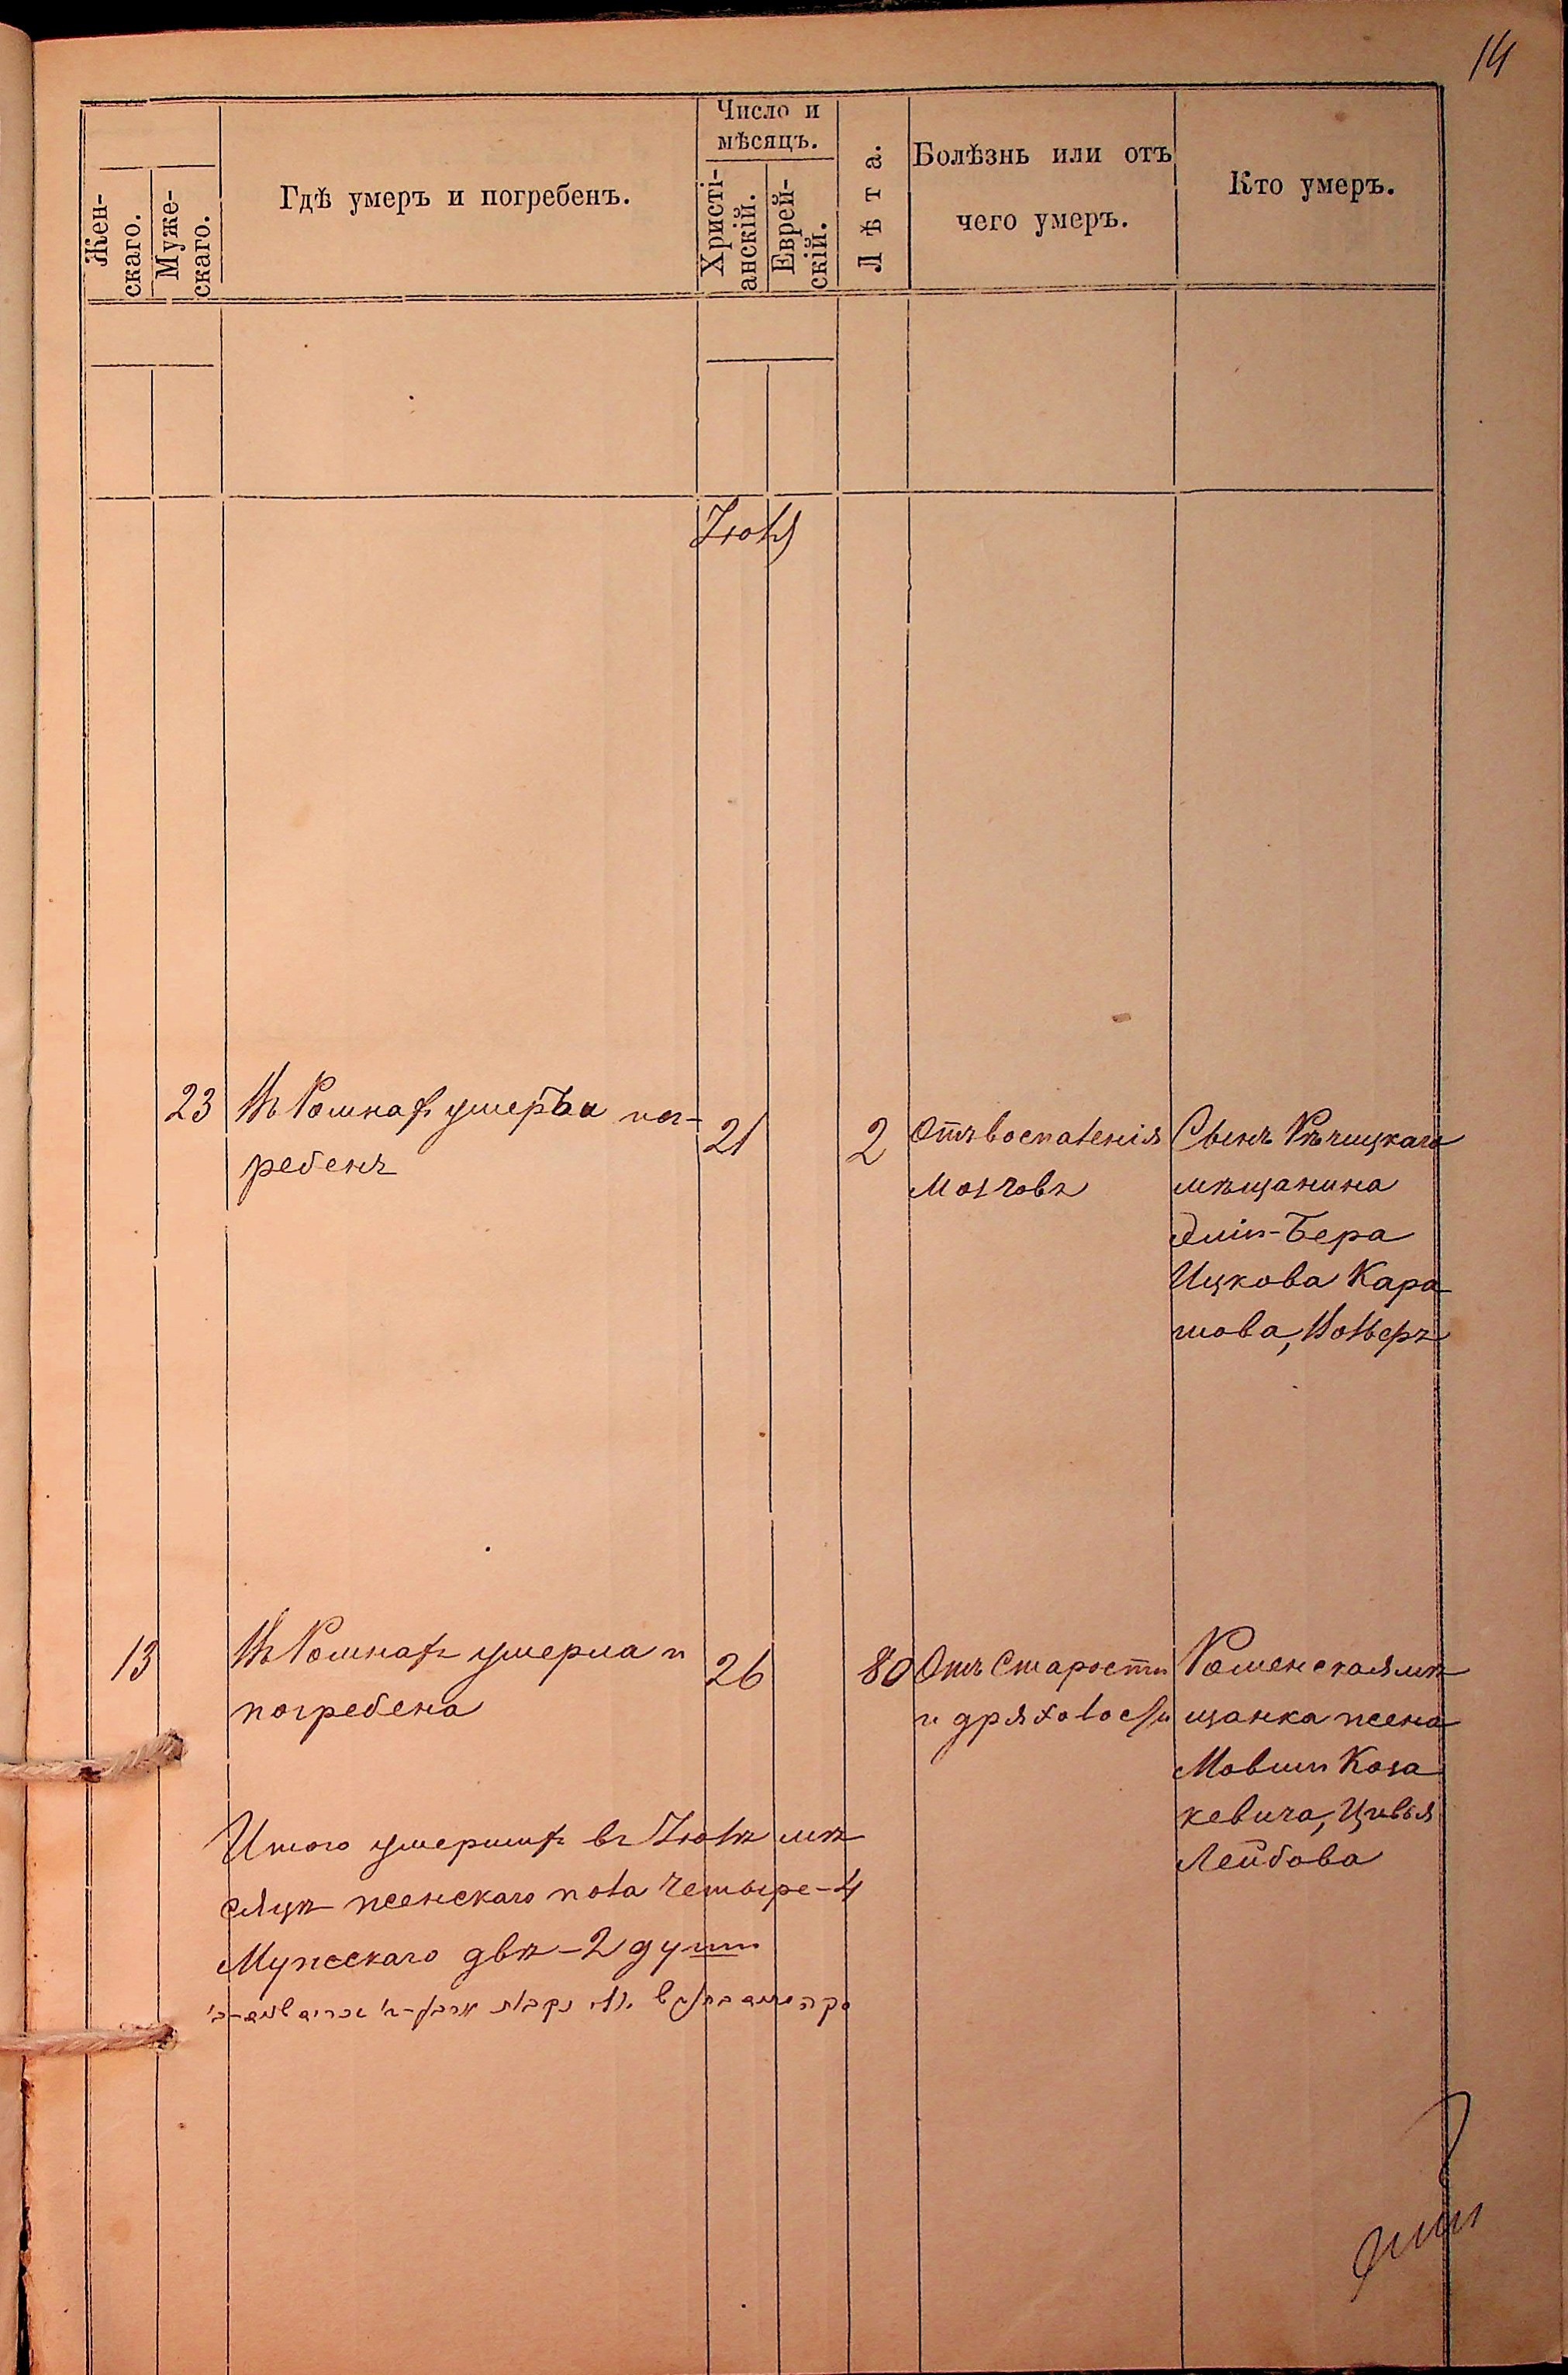 14
Жен-
скаго.
Муже-
скаго.
Гдѣ умеръ и погребенъ.
Число и
мѣсяцъ.
Христі-
анскій.
Еврей-
скій.
Лѣта.
Болѣзнь или отъ
чего умеръ.
Кто умеръ.
Іюля
23
Въ Ромнахъ умеръ и пог-
ребенъ
21
2
Отъ воспаленія
Мозговъ
Сынъ Рѣчицкаго
мѣщанина
Бера
Ицкова Кара
шова,
13
Въ Ромнахъ умерла и
погребена
26
80
Отъ Старости
и дряхлости
Роменская мѣ
щанка жена
Мовши Коза
кевича, Цивья
Лейбова
Итого умершихъ въ Іюлѣ мѣ
сяцѣ женскаго пола Четыре-4
Мужескаго двѣ-2 души